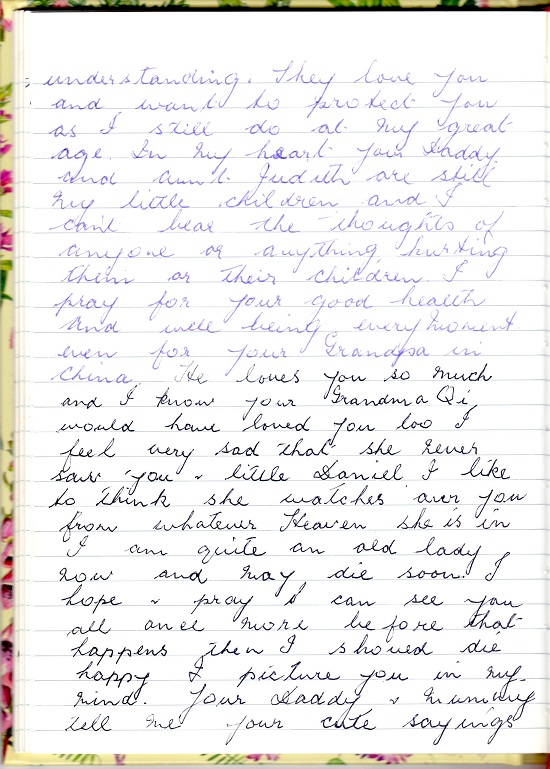 understanding. They love you
and want to protect you
as I still do at my great
age. In my heart your Daddy
and aunt Judith are still
my little children and I
can't bear the thoughts of
anyone or anything hurting
them or their children. I
pray for your good health
and well being every moment
even for your Grandpa in
China. He loves you so much
and I know your Grandma Qi
would have loved you too I
feel very sad that she never
saw you & little Daniel. I like
to think she watches over you
from whatever Heaven she is in
I am quite an old lady
now and may die soon. I
hope & pray I can see you
all once more before that
happens then I should die
happy. I picture you in my
mind. Your Daddy & Mummy
tell me your cute sayings